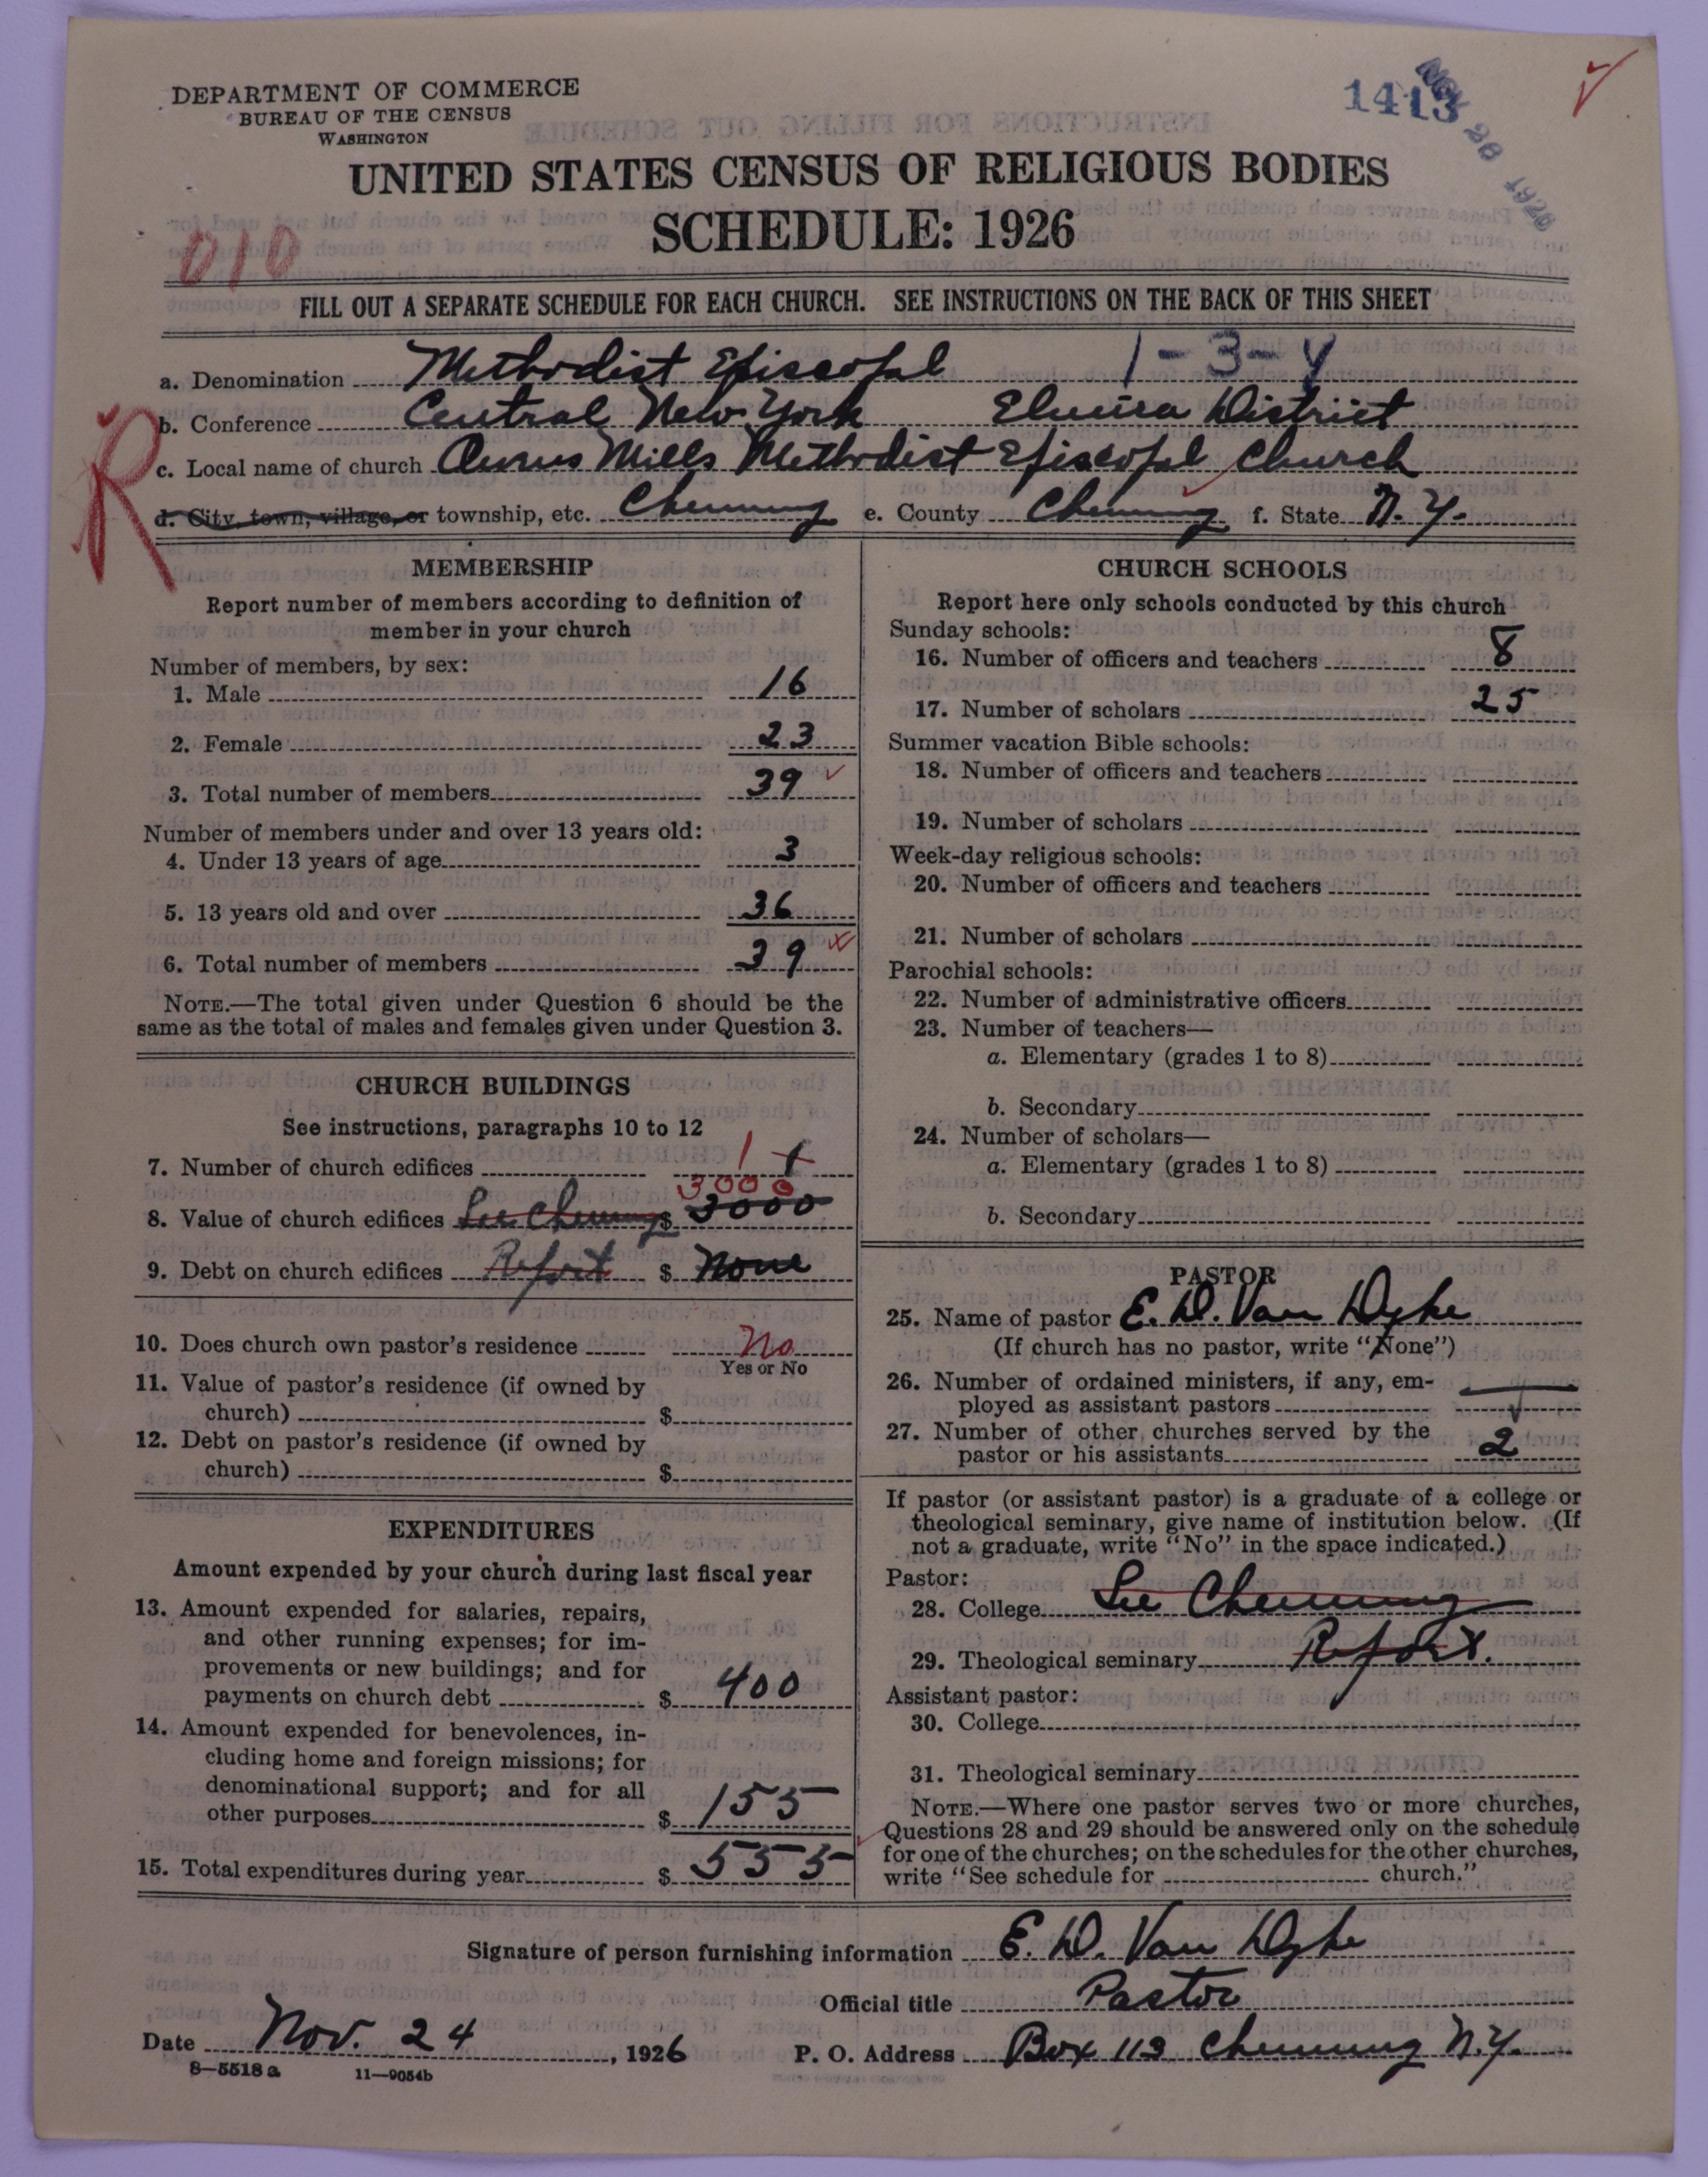 DEPARTMENT OF COMMERCE
BUREAU OF THE CENSUS
WASHINGTON
1413
NOV 26 1926
UNITED STATES CENSUS OF RELIGIOUS BODIES
SCHEDULE: 1926
010
FILL OUT A SEPARATE SCHEDULE FOR EACH CHURCH. SEE INSTRUCTIONS ON THE BACK OF THIS SHEET
a. Denomination Methodist Episcopal 1-3-4
b. Conference Central New York Elmira District
R
c. Local name of church Mills Methodist Episcopal Church
d. City, town, village, or township, etc. Chemung e. County Chemung f. State N.Y.
MEMBERSHIP
Report number of members according to definition of
member in your church
Number of members, by sex:
1. Male 16
2. Female 23
3. Total number of members 39
Number of members under and over 13 years old:
4. Under 13 years of age 3
5. 13 years old and over 36
6. Total number of members 39
NOTE.—The total given under Question 6 should be the
same as the total of males and females given under Question 3.
CHURCH BUILDINGS
See instructions, paragraphs 10 to 12
7. Number of church edifices 1 1
3000
8. Value of church edifices See Chemung $ 3000
9. Debt on church edifices Report $ None
10. Does church own pastor's residence No
Yes or No
11. Value of pastor's residence (if owned by
church) $
12. Debt on pastor's residence (if owned by
church) $
EXPENDITURES
Amount expended by your church during last fiscal year
13. Amount expended for salaries, repairs,
and other running expenses; for im-
provements or new buildings; and for
payments on church debt $ 400
14. Amount expended for benevolences, in-
cluding home and foreign missions; for
denominational support; and for all
other purposes $ 155
15. Total expenditures during year $ 555
CHURCH SCHOOLS
Report here only schools conducted by this church
Sunday schools:
16. Number of officers and teachers 8
17. Number of scholars 25
Summer vacation Bible schools:
18. Number of officers and teachers
19. Number of scholars
Week-day religious schools:
20. Number of officers and teachers
21. Number of scholars
Parochial schools:
22. Number of administrative officers
23. Number of teachers—
a. Elementary (grades 1 to 8)
b. Secondary
24. Number of scholars—
a. Elementary (grades 1 to 8)
b. Secondary
PASTOR
25. Name of pastor E. D. Van Dyke
(If church has no pastor, write "None")
26. Number of ordained ministers, if any, em-
ployed as assistant pastors
27. Number of other churches served by the
pastor or his assistants 2
If pastor (or assistant pastor) is a graduate of a college or
theological seminary, give name of institution below. (If
not a graduate, write "No" in the space indicated.)
Pastor:
28. College See Chemung
29. Theological seminary Report.
Assistant pastor:
30. College
31. Theological seminary
NOTE.—Where one pastor serves two or more churches,
Questions 28 and 29 should be answered only on the schedule
for one of the churches; on the schedules for the other churches,
write "See schedule for church."
Signature of person furnishing information E. D. Van Dyke
Official title Pastor
Date Nov. 24, 1926 P. O. Address Box 113 Chemung N.Y.
8—5518 a 11—9054b